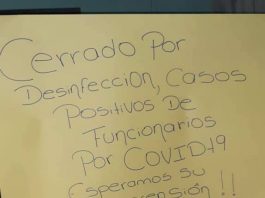 Cerrado Por
Desinfección, Casos
Positivos De
Funcionarios
Por COVID19
Esperamos su
!!